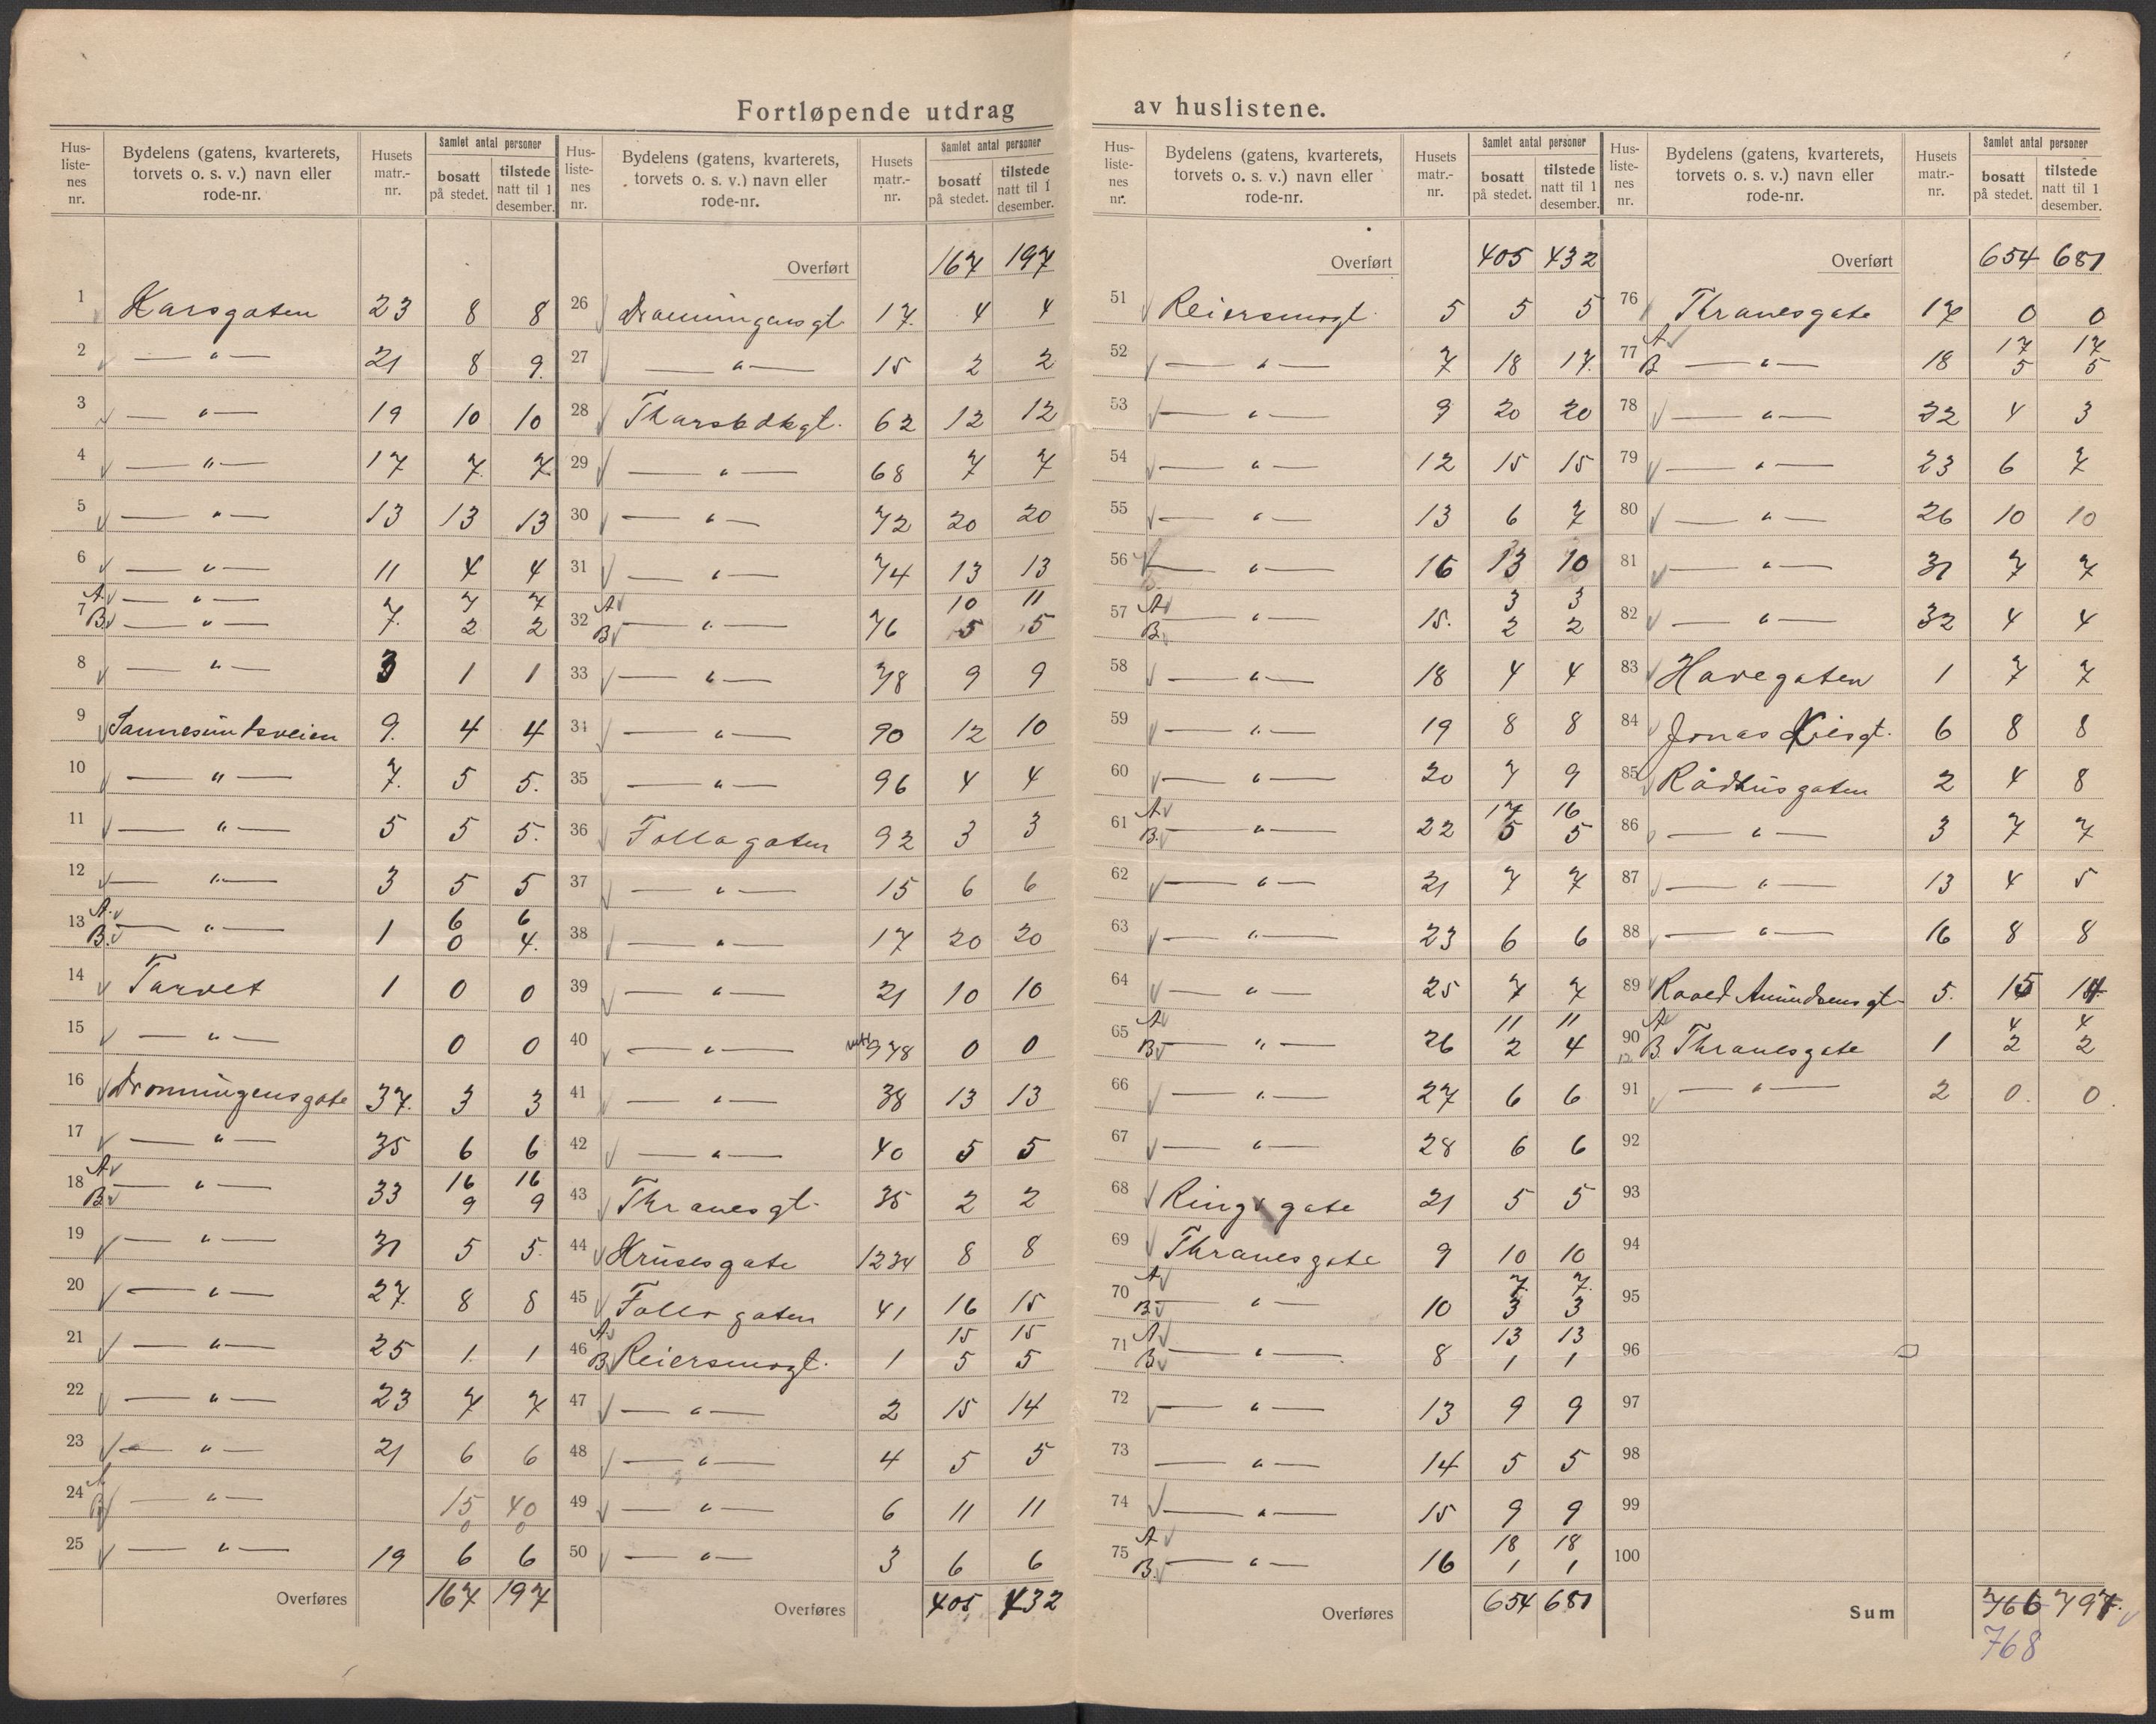 Fortløpende utdrag av huslistene.
Hus-liste-nes nr. | Bydelens (gatens, kvarterets, torvets o. s. v.) navn eller rode-nr. | Husets matr.-nr. | Samlet antal personer | bosatt på stedet. | tilstede natt til 1 desember.
1 Karsgaten 23 8 8
2 — " — 21 8 9.
3 — " — 19 10 10
4 — " — 17 7. 7.
5 — " — 13 13 13
6 — " — 11 4 4
7 A. — " — 7 7
B. — " — 7. 2 2
8 — " — 3 1 1
9 Sannesundsveien 9. 4 4
10 — " — 7. 5 5.
11 — " — 5 5 5.
12 — " — 3 5 5
13 A. 6 6
B. — " — 1 0 4.
14 Torvet 1 0 0
15 — " — 0 0
16 Dronningensgate 37. 3 3
17 — " — 35 6 6
18 A 16 16
B — " — 33 9 9
19 — " — 31 5 5.
20 — " — 27. 8 8
21 — " — 25 1. 1
22 — " — 23 7 7
23 — " — 21 6 6
24 A
B — " — 15 40
0 0
25 — " — 19 6 6
Overføres 167 197
Hus-liste-nes nr. | Bydelens (gatens, kvarterets, torvets o. s. v.) navn eller rode-nr. | Husets matr.-nr. | Samlet antal personer | bosatt på stedet. | tilstede natt til 1 desember.
Overført 167 197
26 Dronningensgt. 17. 4 4
27 — " — 15 2 2
28 62 12 12
29 — " — 68 7 7
30 — " — 72 20 20
31 — " — 74 13 13
32 A 10 11
B — " — 76 5 5
33 — " — 78 9 9
34 — " — 90 12 10
35 — " — 96 4 4
36 Follogaten 92 3 3
37 — " — 15 6 6
38 — " — 17 20 20
39 — " — 21 10 10
40 — " — 978 0 0
41 — " — 38 13 13
42 — " — 40 5 5
43 Thranesgt. 35 2 2
44 Krusesgate 1234 8 8
45 Follogaten 41 16 15
46 A 15 15
B Reiersmogt. 1 5 5
47 — " — 2 15 14
48 — " — 4 5 5
49 — " — 6 11 11
50 — " — 3 6 6
Overføres 405 432
Hus-liste-nes nr. | Bydelens (gatens, kvarterets, torvets o. s. v.) navn eller rode-nr. | Husets matr.-nr. | Samlet antal personer | bosatt på stedet. | tilstede natt til 1 desember.
Overført 405 432
51 Reiersmogt. 5 5 5
52 — " — 7 18 17.
53 — " — 9 20 20
54 — " — 12 15 15
55 — " — 13 6 7
56 — " — 16 13 10
57 A 3 3
B. — " — 15. 2 2
58 — " — 18 4 4
59 — " — 19 8 8
60 — " — 20 7 9
61 A 17 16
B. — " — 22 5 5
62 — " — 21 7 7
63 — " — 23 6 6
64 — " — 25 7 7
65 A 11 11
B — " — 26 2 4
66 — " — 27 6 6
67 — " — 28 6 6
68 Ringgate 21 5 5
69 Thranesgate 9 10 10
70 A 7. 7.
B. — " — 10 3 3
71 A 13 13
B — " — 8 1 1
72 — " — 13 9 9
73 — " — 14 5 5
74 — " — 15 9 9
75 A 18 18
B. — " — 16 1 1
Overføres 654 681
Hus-liste-nes nr. | Bydelens (gatens, kvarterets, torvets o. s. v.) navn eller rode-nr. | Husets matr.-nr. | Samlet antal personer | bosatt på stedet. | tilstede natt til 1 desember.
Overført 654 681
76 Thranesgate 17 0 0
77 A 17 17
B — " — 18 5 5
78 — " — 22 4 3
79 — " — 23 6 7
80 — " — 26 10 10
81 — " — 31 7 7
82 — " — 32 4 4
83 Havegaten 1 7 7
84 Jonas Liesgt. 6 8 8
85 Rådhusgaten 2 4 8
86 — " — 3 7 7
87 — " — 13 4 5
88 — " — 16 8 8
89 Roald Amundsensgt. 5. 15 14
90 A 4 4
B. Thranesgate 1 2 2
91 — " — 2 0. 0.
92
93
94
95
96
97
98
99
100
Sum 766 797.
768